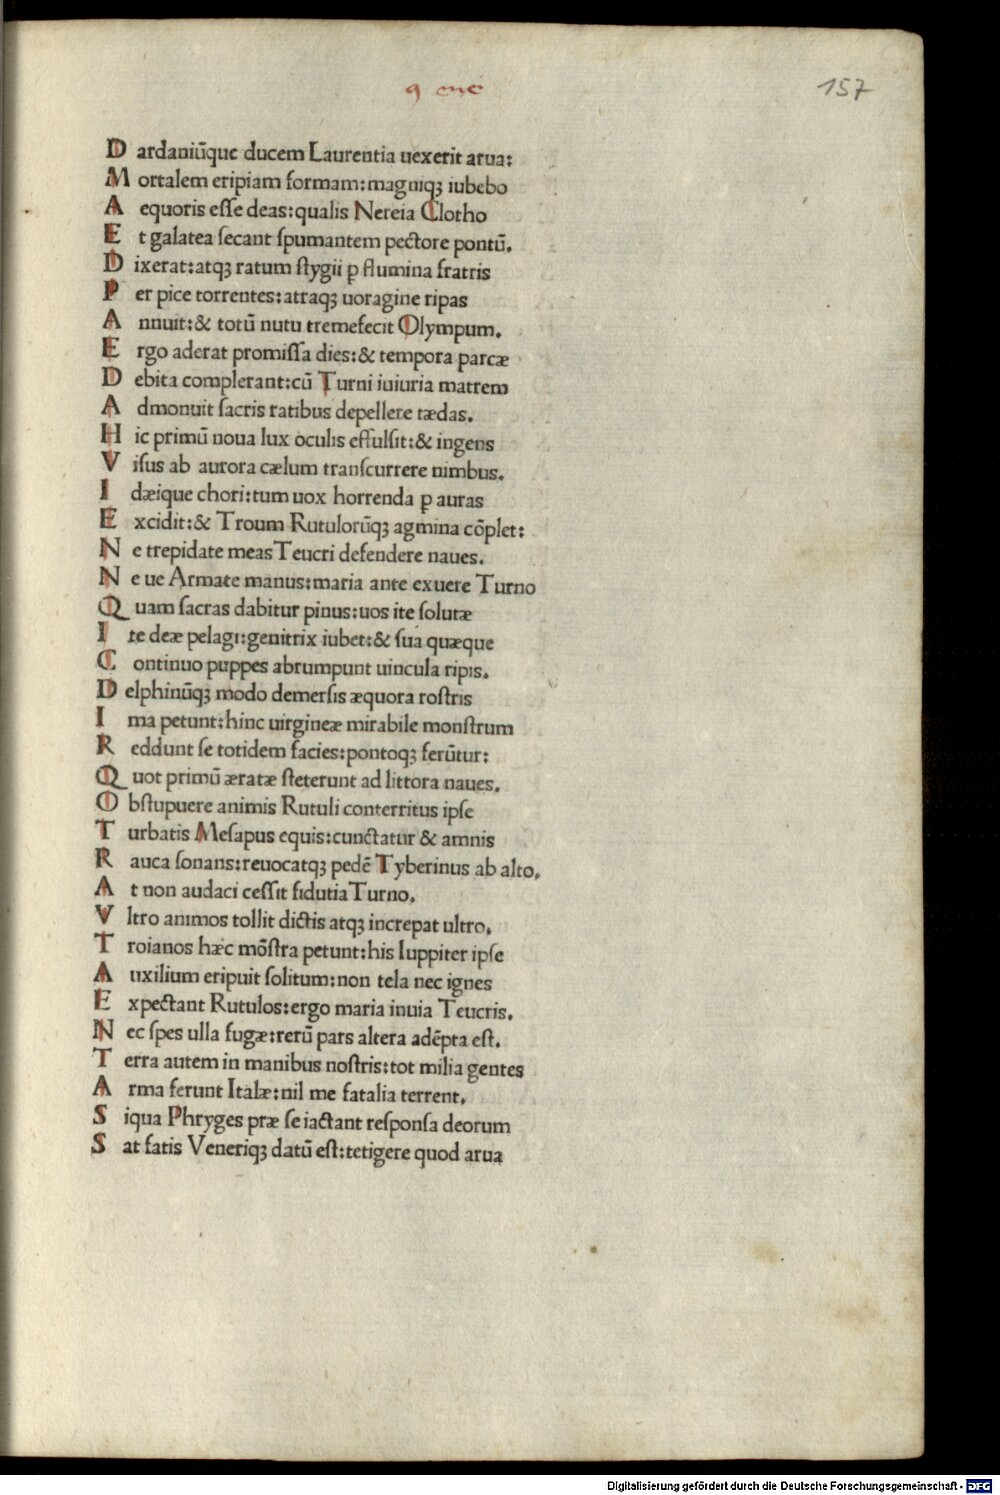 9 ene
157
D ardaniūque ducem Laurentia uexerit arua:
M ortalem eripiam formam: magniqꝫ iubebo
A equoris eſſe deas: qualis Nereia Clotho
E t galatea ſecant ſpumantem pectore pontū.
D ixerat: atqꝫ ratum ſtygii ꝑ flumina fratris
P er pice torrentes: atraqꝫ uoragine ripas
A nnuit: & totū nutu tremefecit Olympum.
E rgo aderat promiſſa dies: & tempora parcæ
D ebita complerant: cū Turni iuiuria matrem
A dmonuit ſacris ratibus depellere tædas.
H ic primū noua lux oculis effulſit: & ingens
V iſus ab aurora cælum tranſcurrere nimbus.
I dæique chori: tum uox horrenda ꝑ auras
E xcidit: & Troum Rutulorūqꝫ agmina cōplet:
N e trepidate meas Teucri defendere naues.
N e ue Armate manus: maria ante exuere Turno
Q uam ſacras dabitur pinus: uos ite ſolutæ
I te deæ pelagi: genitrix iubet: & ſua quæque
C ontinuo puppes abrumpunt uincula ripis.
D elphinūqꝫ modo demerſis æquora roſtris
I ma petunt: hinc uirgineæ mirabile monſtrum
R eddunt ſe totidem facies: pontoqꝫ ferūtur:
Q uot primū æratæ ſteterunt ad littora naues.
O bſtupuere animis Rutuli conterritus ipſe
T urbatis Meſapus equis: cunctatur & amnis
R auca ſonans: reuocatqꝫ pedē Tyberinus ab alto.
A t non audaci ceſſit fidutia Turno.
V ltro animos tollit dictis atqꝫ increpat ultro.
T roianos hæc mōſtra petunt: his Iuppiter ipſe
A uxilium eripuit ſolitum: non tela nec ignes
E xpectant Rutulos: ergo maria inuia Teucris.
N ec ſpes ulla fugæ: rerū pars altera adēpta eſt.
T erra autem in manibus noſtris: tot milia gentes
A rma ferunt Italæ: nil me fatalia terrent.
S iqua Phryges præ ſe iactant reſponſa deorum
S at fatis Veneriqꝫ datū eſt: tetigere quod arua
Digitalisierung gefördert durch die Deutsche Forschungsgemeinschaft - DFG